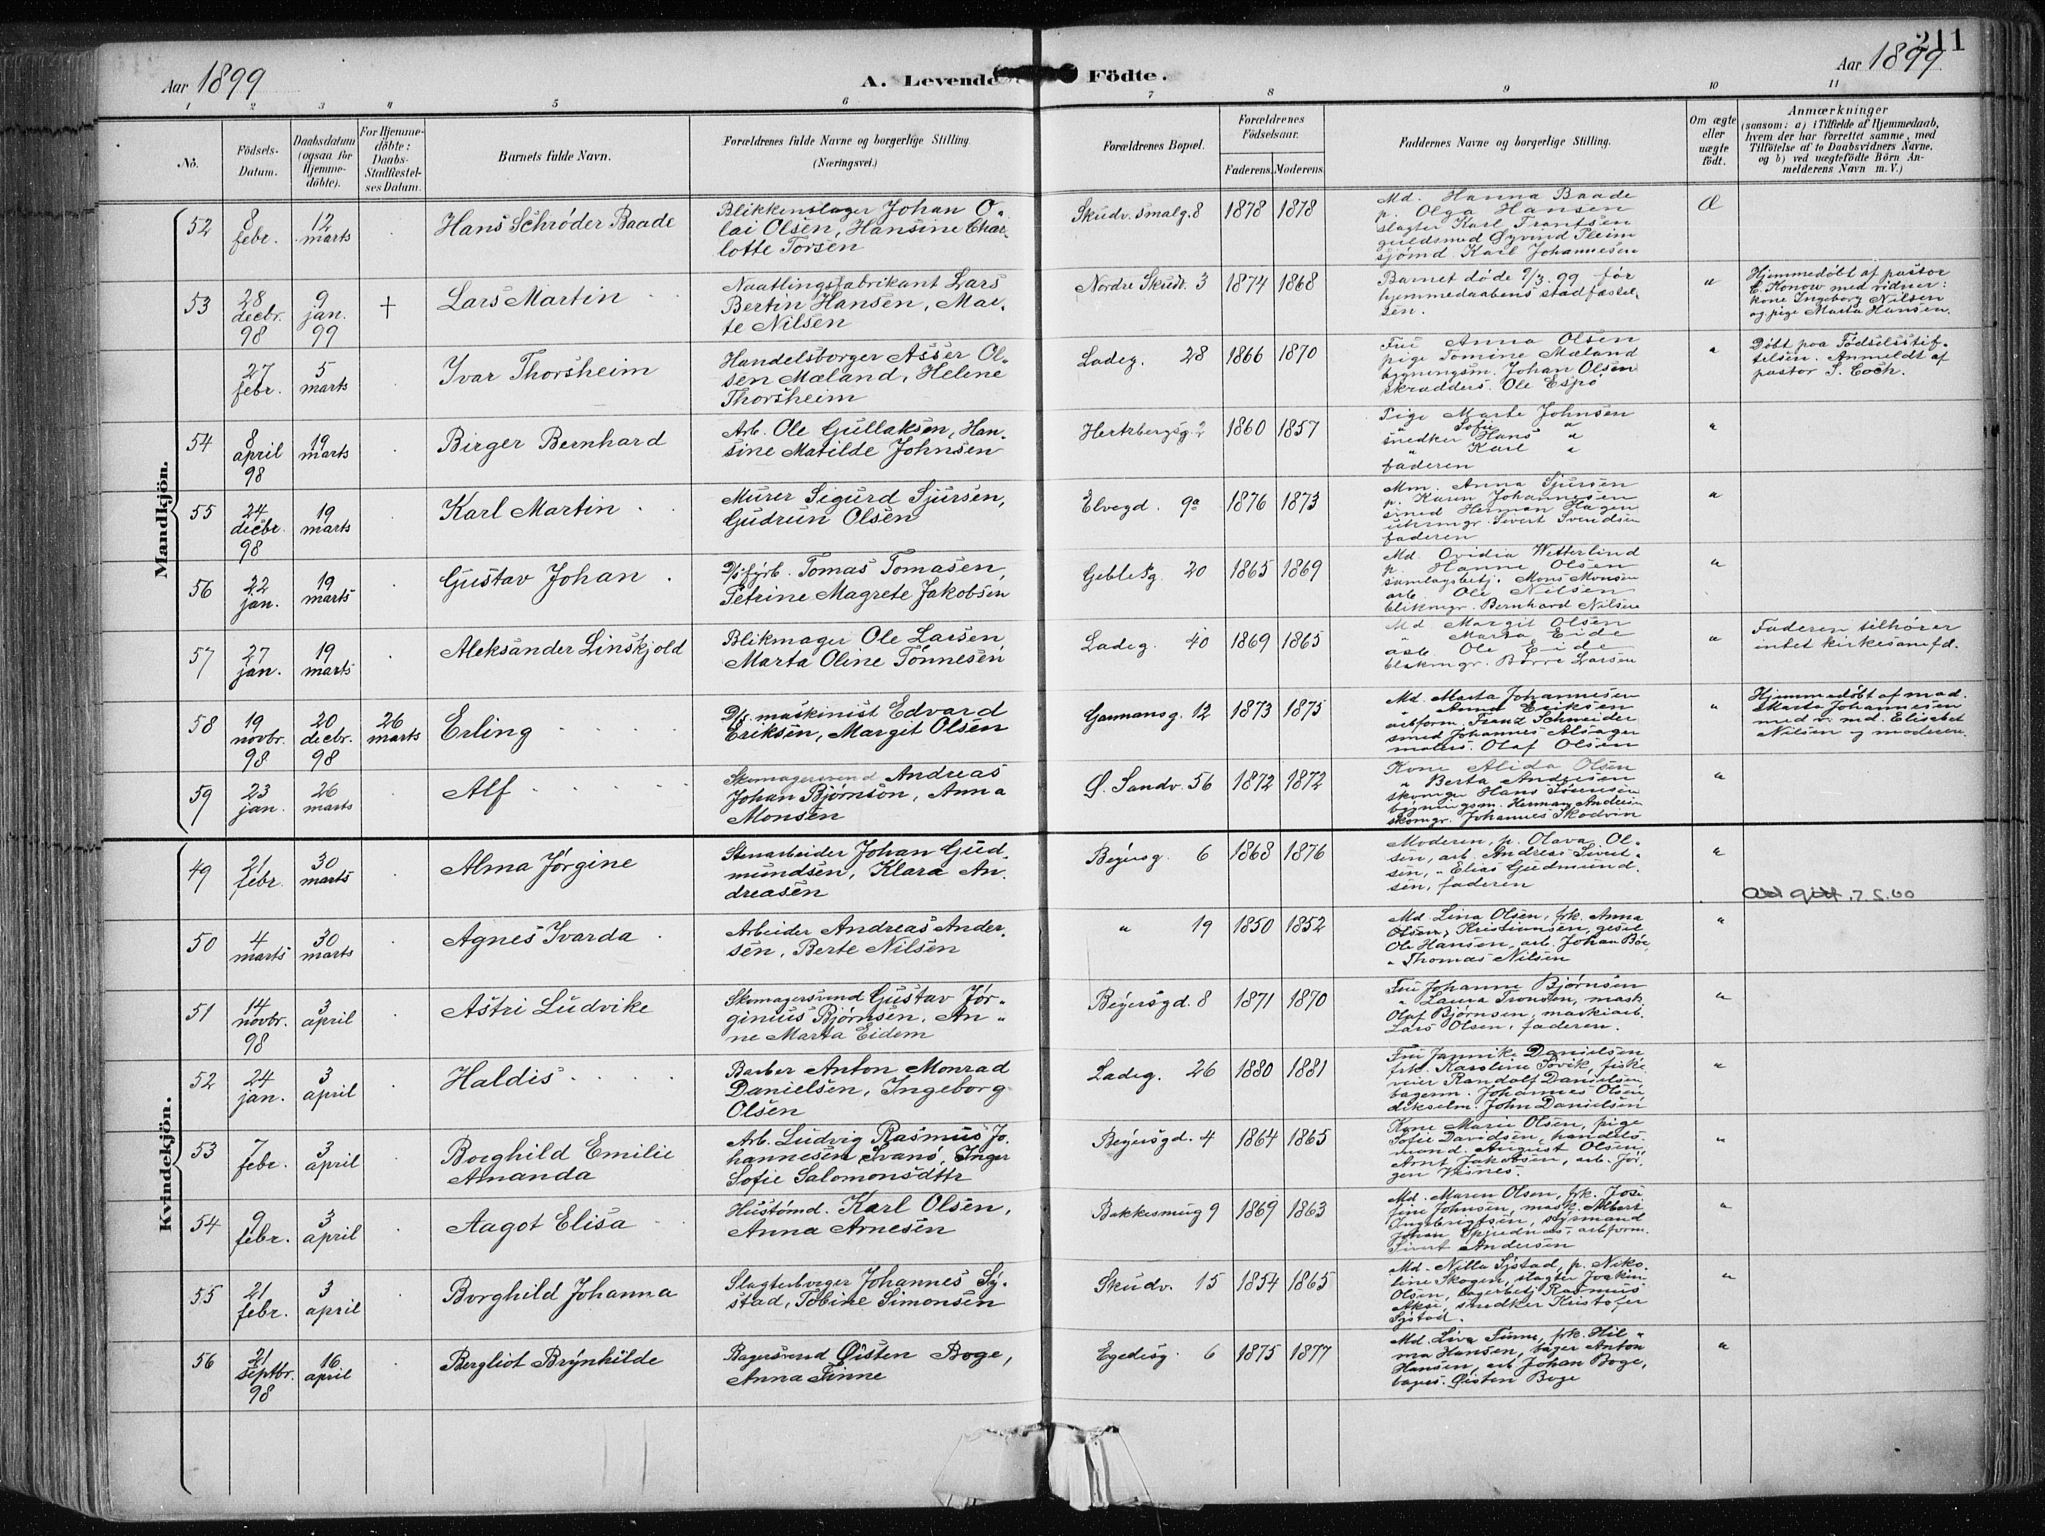 211
Aar 1899
A. Levende Födte.
Aar 1899
1 2 3 4 5 6 7 8 9 10 11
No.
Födsels-
Datum.
Daabsdatum
(ogsaa for
Hjemme-
döbte).
For Hjemme-
döbte:
Daabs-
Stadfæstel-
ses Datum.
Barnets fulde Navn.
Forældrenes fulde Navne og borgerlige Stilling
(Næringsvei.)
Forældrenes Bopæl.
Forældrenes
Födselsaar.
Faderens. Moderens.
Faddernes Navne og borgerlige Stilling.
Om ægte
eller
uægte
födt.
Anmærkninger
(saasom: a) i Tilfælde af Hjemmedaab,
hvem der har forrettet samme, med
Tilföielse af to Daabsvidners Navne,
og b) ved uægtefödte Börn An-
melderens Navn m. V.)
Mandkjön.
52
8
febr.
12
marts
Hans Schrøder Baade
Blikkenslager Johan O-
lai Olsen, Hansine Char-
lotte Torsen
Skudv. smalg. 8
1878 1878
Md. Hanna Baade
p. Olga Hansen
slagter Karl Frantsen
guldsmed Øyvind Pleim
sjømd. Karl Johannesen
Æ
53
28
decbr.
98
9
jan.
99
†
Lars Martin
Naatlingsfabrikant Lars
Bertin Hansen, Mar-
te Nilsen
Nordre Skudv. 3
1874 1868
Barnet døde 9/3. 99 før
hjemmedaabens stadfæstel-
sen.
"
Hjemmedøbt af pastor
E. Konow med vidner:
kone Ingeborg Nilsen
og pige Marta Hansen.
27
febr.
5
marts
Ivar Thorsheim
Handelsborger Asser Ol-
sen Mæland, Helene
Thorsheim
Ladeg. 28
1866 1870
Fru Anna Olsen
pige Tomine Mæland
bygningsm. Johan Olsen
skrædders. Ole Espø
"
Døbt paa Fødselsstif-
telsen. Anmeldt af
pastor S. Coch.
54
8
april
98
19
marts
Birger Bernhard
Arb. Ole Gullaksen, Han-
sine Matilde Johnsen
Hertzbergsg.
1860 1857
Pige Marte Johnsen
" Sofie "
snedker Hans "
" Karl "
faderen
"
55
24
decbr.
98
19
marts
Karl Martin
Murer Sigurd Sjursen,
Gudrun Olsen
Elvegd. 9a
1876 1873
Mm. Anna Sjursen
p. Karen Johannesen
smed Herman Hagen
uhrmgr. Sivert Svendsen
faderen
"
56
22
jan.
19
marts
Gustav Johan
D/s fyrb. Tomas Tomasen,
Petrine Magrete Jakobsen
Geblesg. 20
1865 1869
Md. Ovidia Wetterlind
p. Hanne Olsen
samlagsbetj. Mons Monsen
arb. Ole Nilsen
blikmgr. Bernhard Nilsen
"
57
27
jan.
19
marts
Aleksander Linskjold
Blikmager Ole Larsen
Marta Oline Tønnesen
Ladeg. 40
1869 1865
Md Margit Olsen
" Marta Eide
arb. Ole Eide
blikmgr. Børre Larsen
"
Faderen tilhører
intet kirkesamfd.
58
19
novbr.
98
20
decbr.
98
26
marts
Erling
D/s. maskinist Edvard
Eriksen, Margit Olsen
Garmansg. 12
1873 1875
Md. Marta Johannesen
" Anna Eriksen
arbform. Franz Schneider
smed Johannes Alsager
malers. Olaf Olsen
"
Hjemmedøbt af mad.
Marta Johannesen
med v. md. Elisabet
Nilsen og moderen.
59
23
jan.
26
marts
Alf
Skomagersvend Andreas
Johan Bjørnson, Anna
Monsen
Ø. Sandv. 56
1872 1872
Kone Alida Olsen
" Berta Andersen
skomgr Hans Sørensen
bygningsm. Herman Andersen
skomgr. Johannes Skodvin
"
Kvindekjön.
49
21
febr.
30
marts
Alma Jørgine
Stenarbeider Johan Gud-
mundsen, Klara An-
dreasen
Beyersg. 6
1868 1876
Moderen, p. Olava Ol-
sen, arb. Andreas Sivert-
sen, " Elias Gudmund-
sen, faderen
"
50
4
marts
30
marts
Agnes Ivarda
Arbeider Andreas Ander-
sen, Berte Nilsen
" 19
1850 1852
Md Lina Olsen, frk. Anna
Olsen, Kristiansen, gesel
Ole Hansen, arb. Johan Bøe,
" Thomas Nilsen
"
51
14
novbr.
98
3
april
Astri Ludvike
Skomagersvend Gustav Jør-
ginius Bjørnsen, An-
ne Marta Eidem
Beyersgd. 8
1871 1870
Fru Johanne Bjørnsen
" Laura Tronsen, mask.
Olaf Bjørnsen, maskiarb.
Lars Olsen, faderen.
"
52
24
jan.
3
april
Haldis
Barber Anton Monrad
Danielsen, Ingeborg
Olsen
Ladeg. 26
1880 1881
Fru Jannike Danielsen
frk. Karoline Søvik, fiske
veier Randolf Danielsen,
bagerm. Johannes Olsen
dikselm. John Danielsen
"
53
7
febr.
3
april
Borghild Emilie
Amanda
Arb. Ludvig Rasmus Jo-
hannesen Svanø, Inger
Sofie Salomonsdttr
Beyersgd. 4
1864 1865
Kone Marie Olsen, pige
Sofie Davidsen, handels-
mand. August Olsen
Arnt Jakobsen, arb. Jør-
gen Visnes.
"
54
9
febr.
3
april
Aagot Elisa
Hustømd. Karl Olsen,
Anna Arnesen
Bakkesmug 9
1869 1863
Md. Maren Olsen, frk. Jose-
fine Johnsen, mask. Albert
Ingebrigtsen, styrmand
Johan Opjednæs, arbform.
Sivert Andersen
"
55
21
febr.
3
april
Borghild Johanna
Slagterborger Johannes Sy-
stad, Tobine Simonsen
Skudv. 15
1854 1865
Md. Nilla Systad, p. Niko-
line Skogen, slagter Joakim
Olsen, bagerbetj Rasmus
Akse, snedker Kristofer
Systad.
"
56
21
septbr.
98
16
april
Bergliot Brynhilde
Bagersvend Øisten Boge,
Anna Finne
Egedesg. 6
1875 1877
Md. Liva Finne, frk. Hil-
ma Hansen, bager Anton
Hansen, arb Johan Boge,
bages. Øisten Boge
"